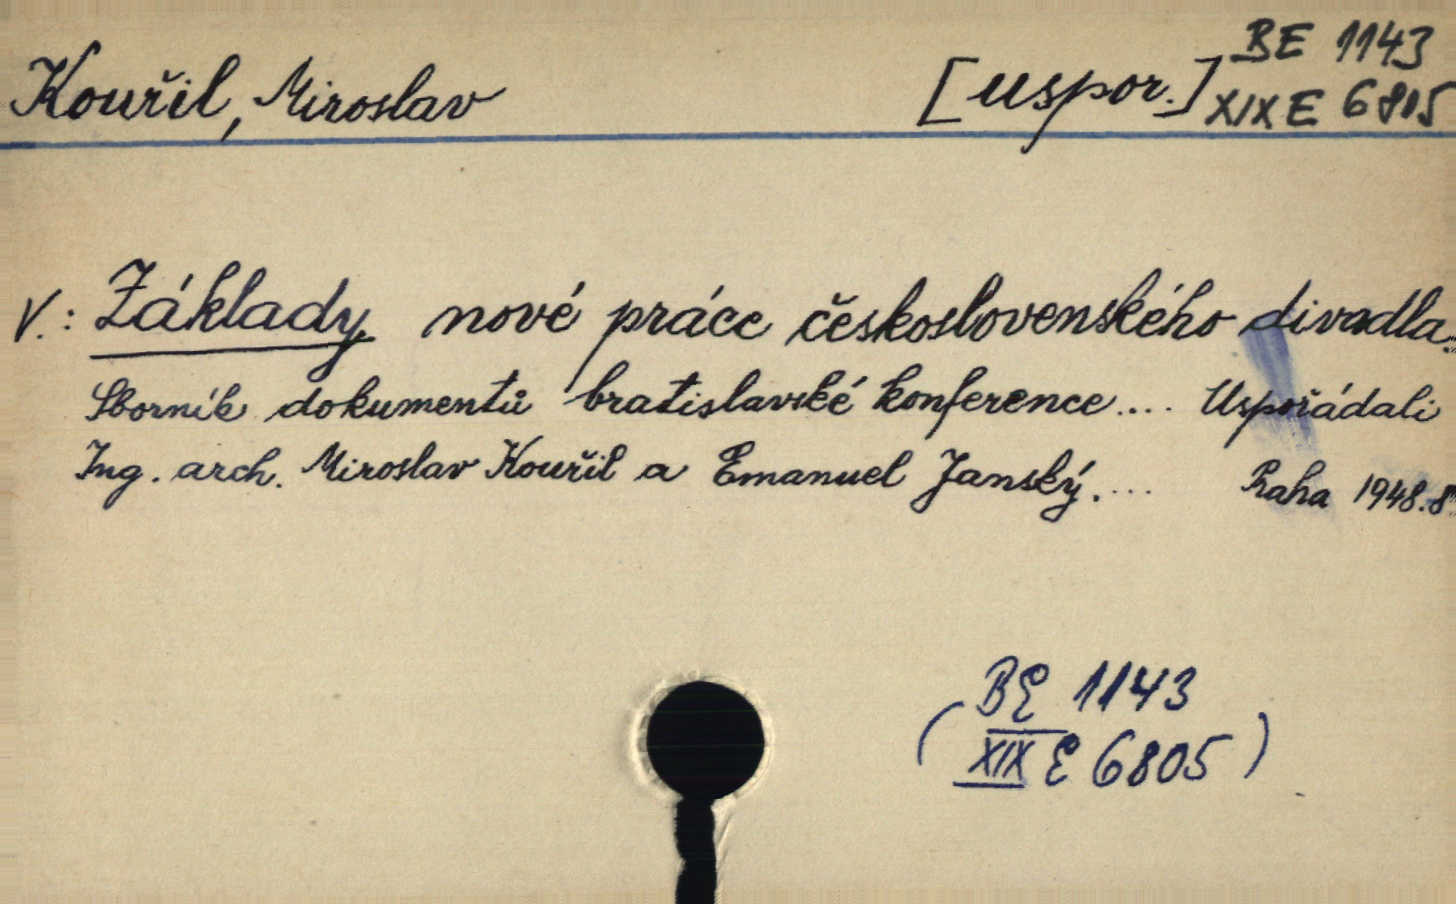 Kouřil, Miroslav [uspor.] BE 1143
XIX E 6805
V.: Základy nové práce československého divadla.
Sborník dokumentů bratislavské konference.... Uspořádali
Ing. arch. Miroslav Kouřil a Emanuel Janský.... Praha 1948. 8°
BE 1143
(XIX E 6805)